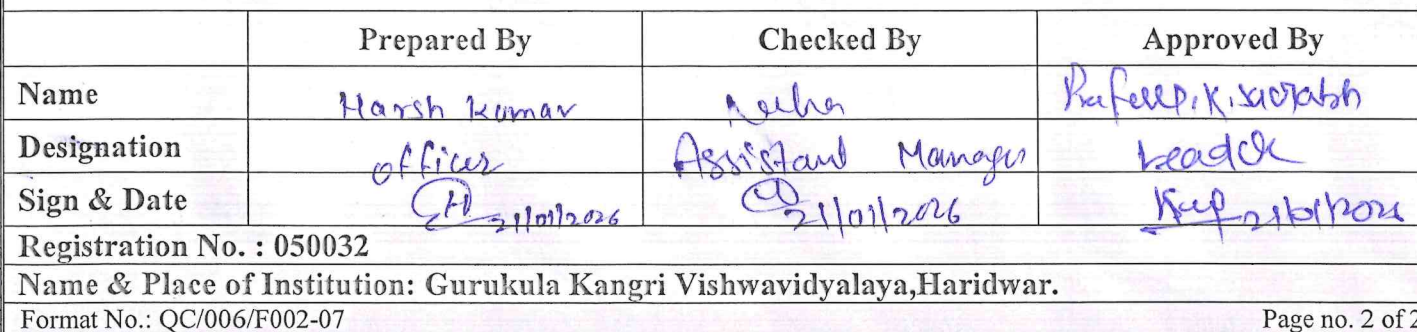 Prepared By Checked By Approved By
Name Harsh Kumar Neha
Designation officer Assistant Manager Leader
Sign & Date 21/01/2026 21/01/2026 21/01/2026
Registration No. : 050032
Name & Place of Institution: Gurukula Kangri Vishwavidyalaya,Haridwar.
Format No.: QC/006/F002-07 Page no. 2 of 2